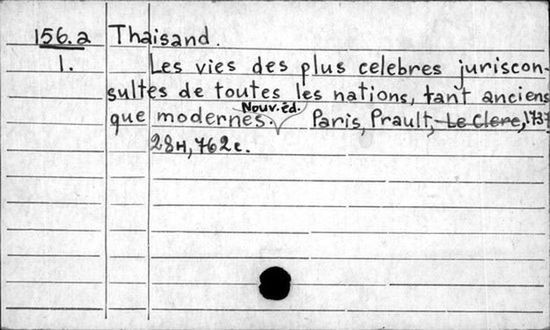 156.a Thaisand.
1. Les vies des plus celebres juriscon-
sultes de toutes les nations, tant anciens
que modernes. Nouv. éd. Paris, Prault, Le Clerc, 1737
28н, 762с.